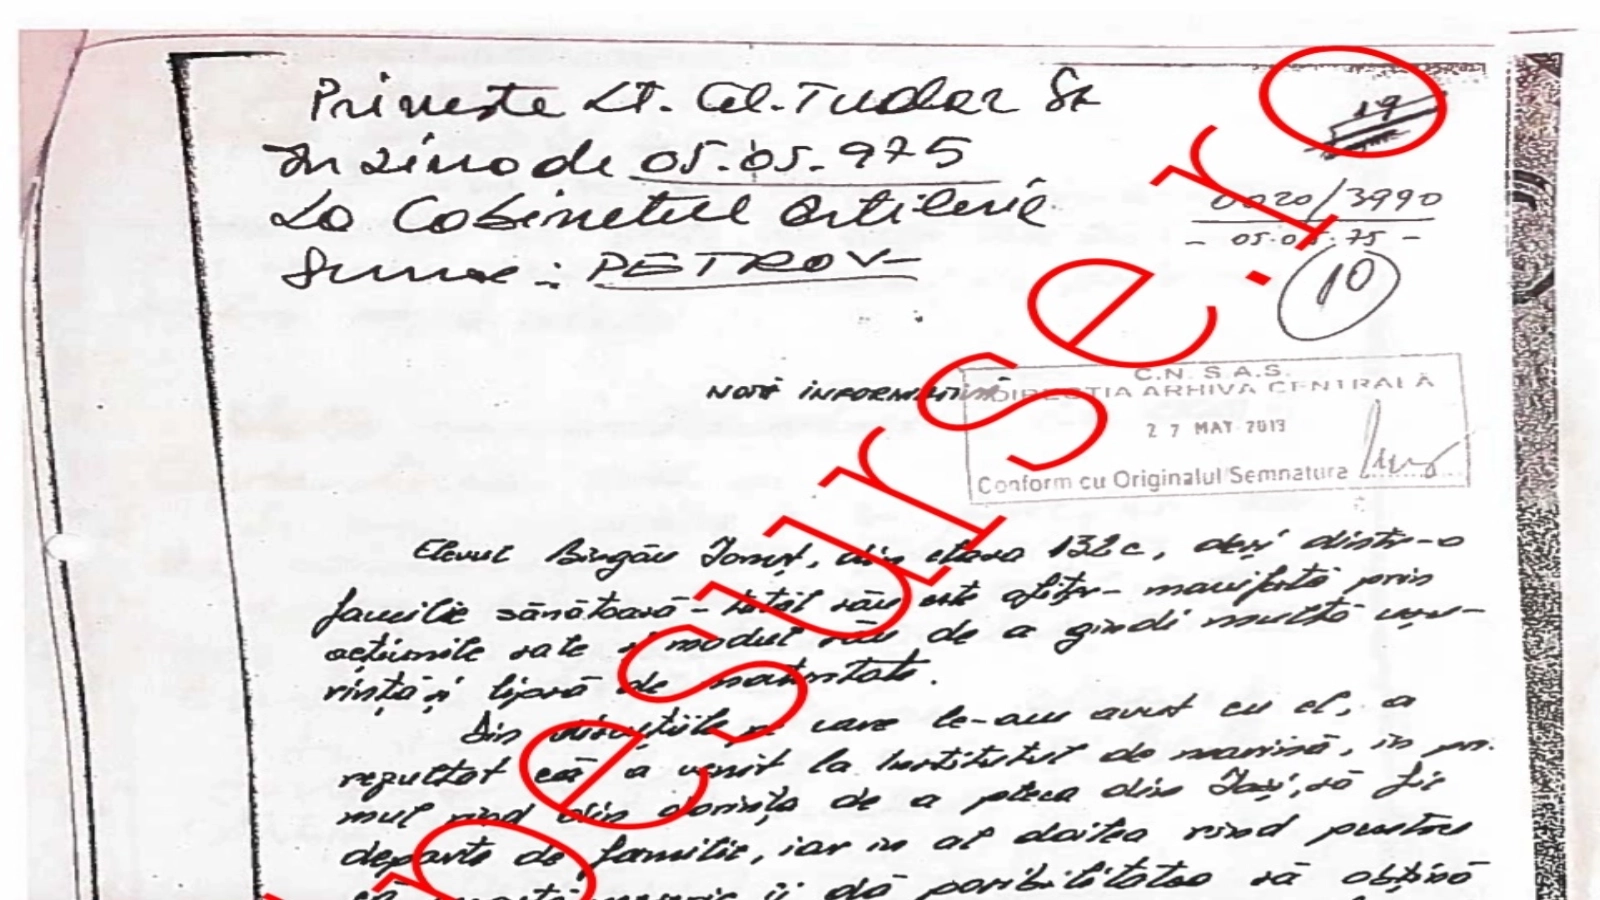 Primește Lt. Col. Tudor St
În ziua de 05.05.975
La Cabinetul Artilerie
Sursa: PETROV
19
0020/3990
- 05.05.75 -
10
NOTĂ INFORMATIVĂ
C.N.S.A.S.
DIRECȚIA ARHIVA CENTRALĂ
27 MAY 2013
Conform cu Originalul/Semnatura
Elevul Ionuț, din clasa 132c, deși dintr-o
familie sănătoasă - totul său este - manifestă prin
acțiunile sale și modul său de a gîndi multă ușu-
rință și lipsă de maturitate.
Din discuțiile pe care le-am avut cu el, a
rezultat că a venit la Institutul de marină, în pri-
mul rînd din dorința de a pleca din Iași, să fie
departe de familie, iar în al doilea rînd pentru
că îi dă posibilitatea să obțină
pesurse.ro